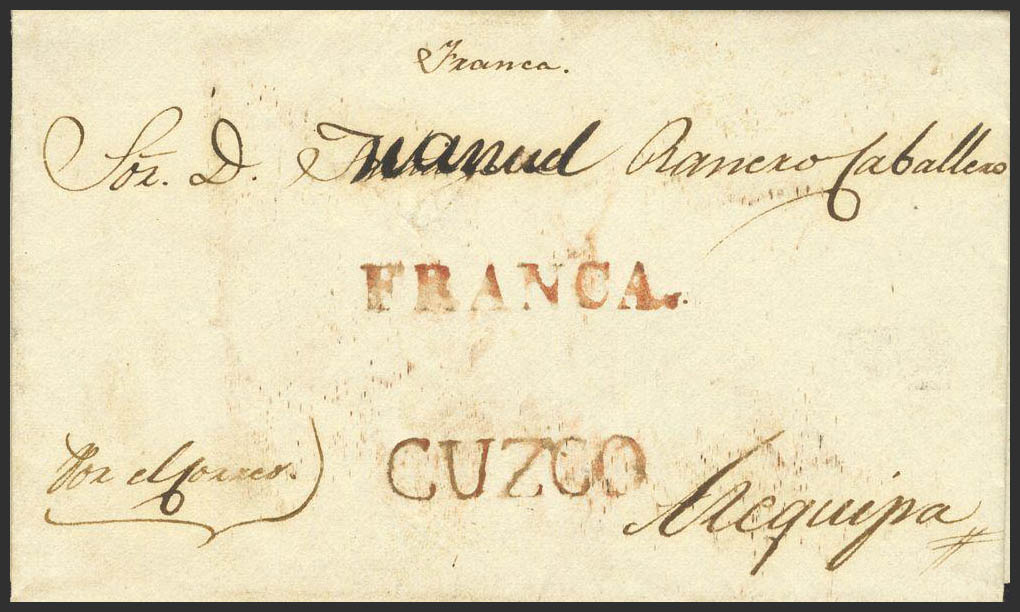 Franca.
Sor. D. Manuel Ranero Caballero
FRANCA.
Por el correo.
CUZCO
Arequipa